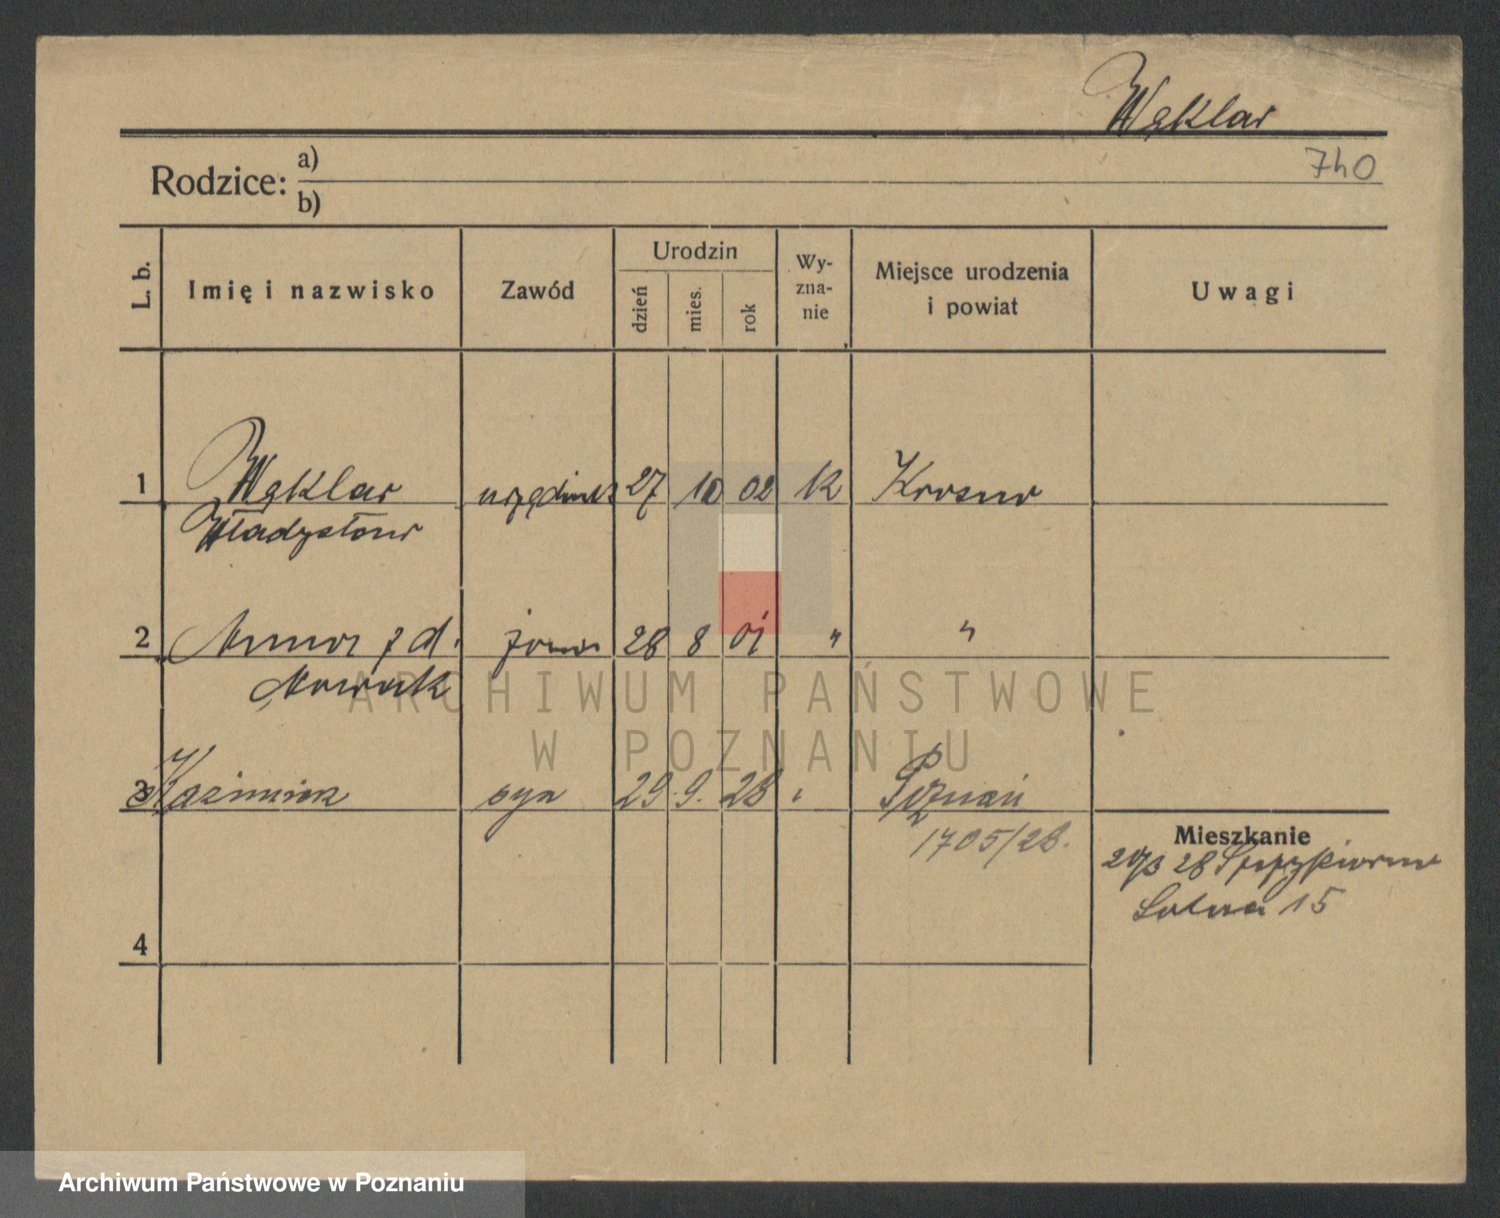 Wąklar
740
Rodzice: a)
b)
L. b. Imię i nazwisko Zawód Urodzin dzień mies. rok Wy-zna-nie Miejsce urodzenia i powiat Uwagi
1 Wąklar urzędnik 27 10 02 k Krosno
Władysław
2 Anna z d. żona 28 8 01 " "
Nowak
3 Kazimierz syn 29 9. 28 " Poznań
1705/28.
Mieszkanie
28
15
4
ARCHIWUM PAŃSTWOWE
W POZNANIU
Archiwum Państwowe w Poznaniu